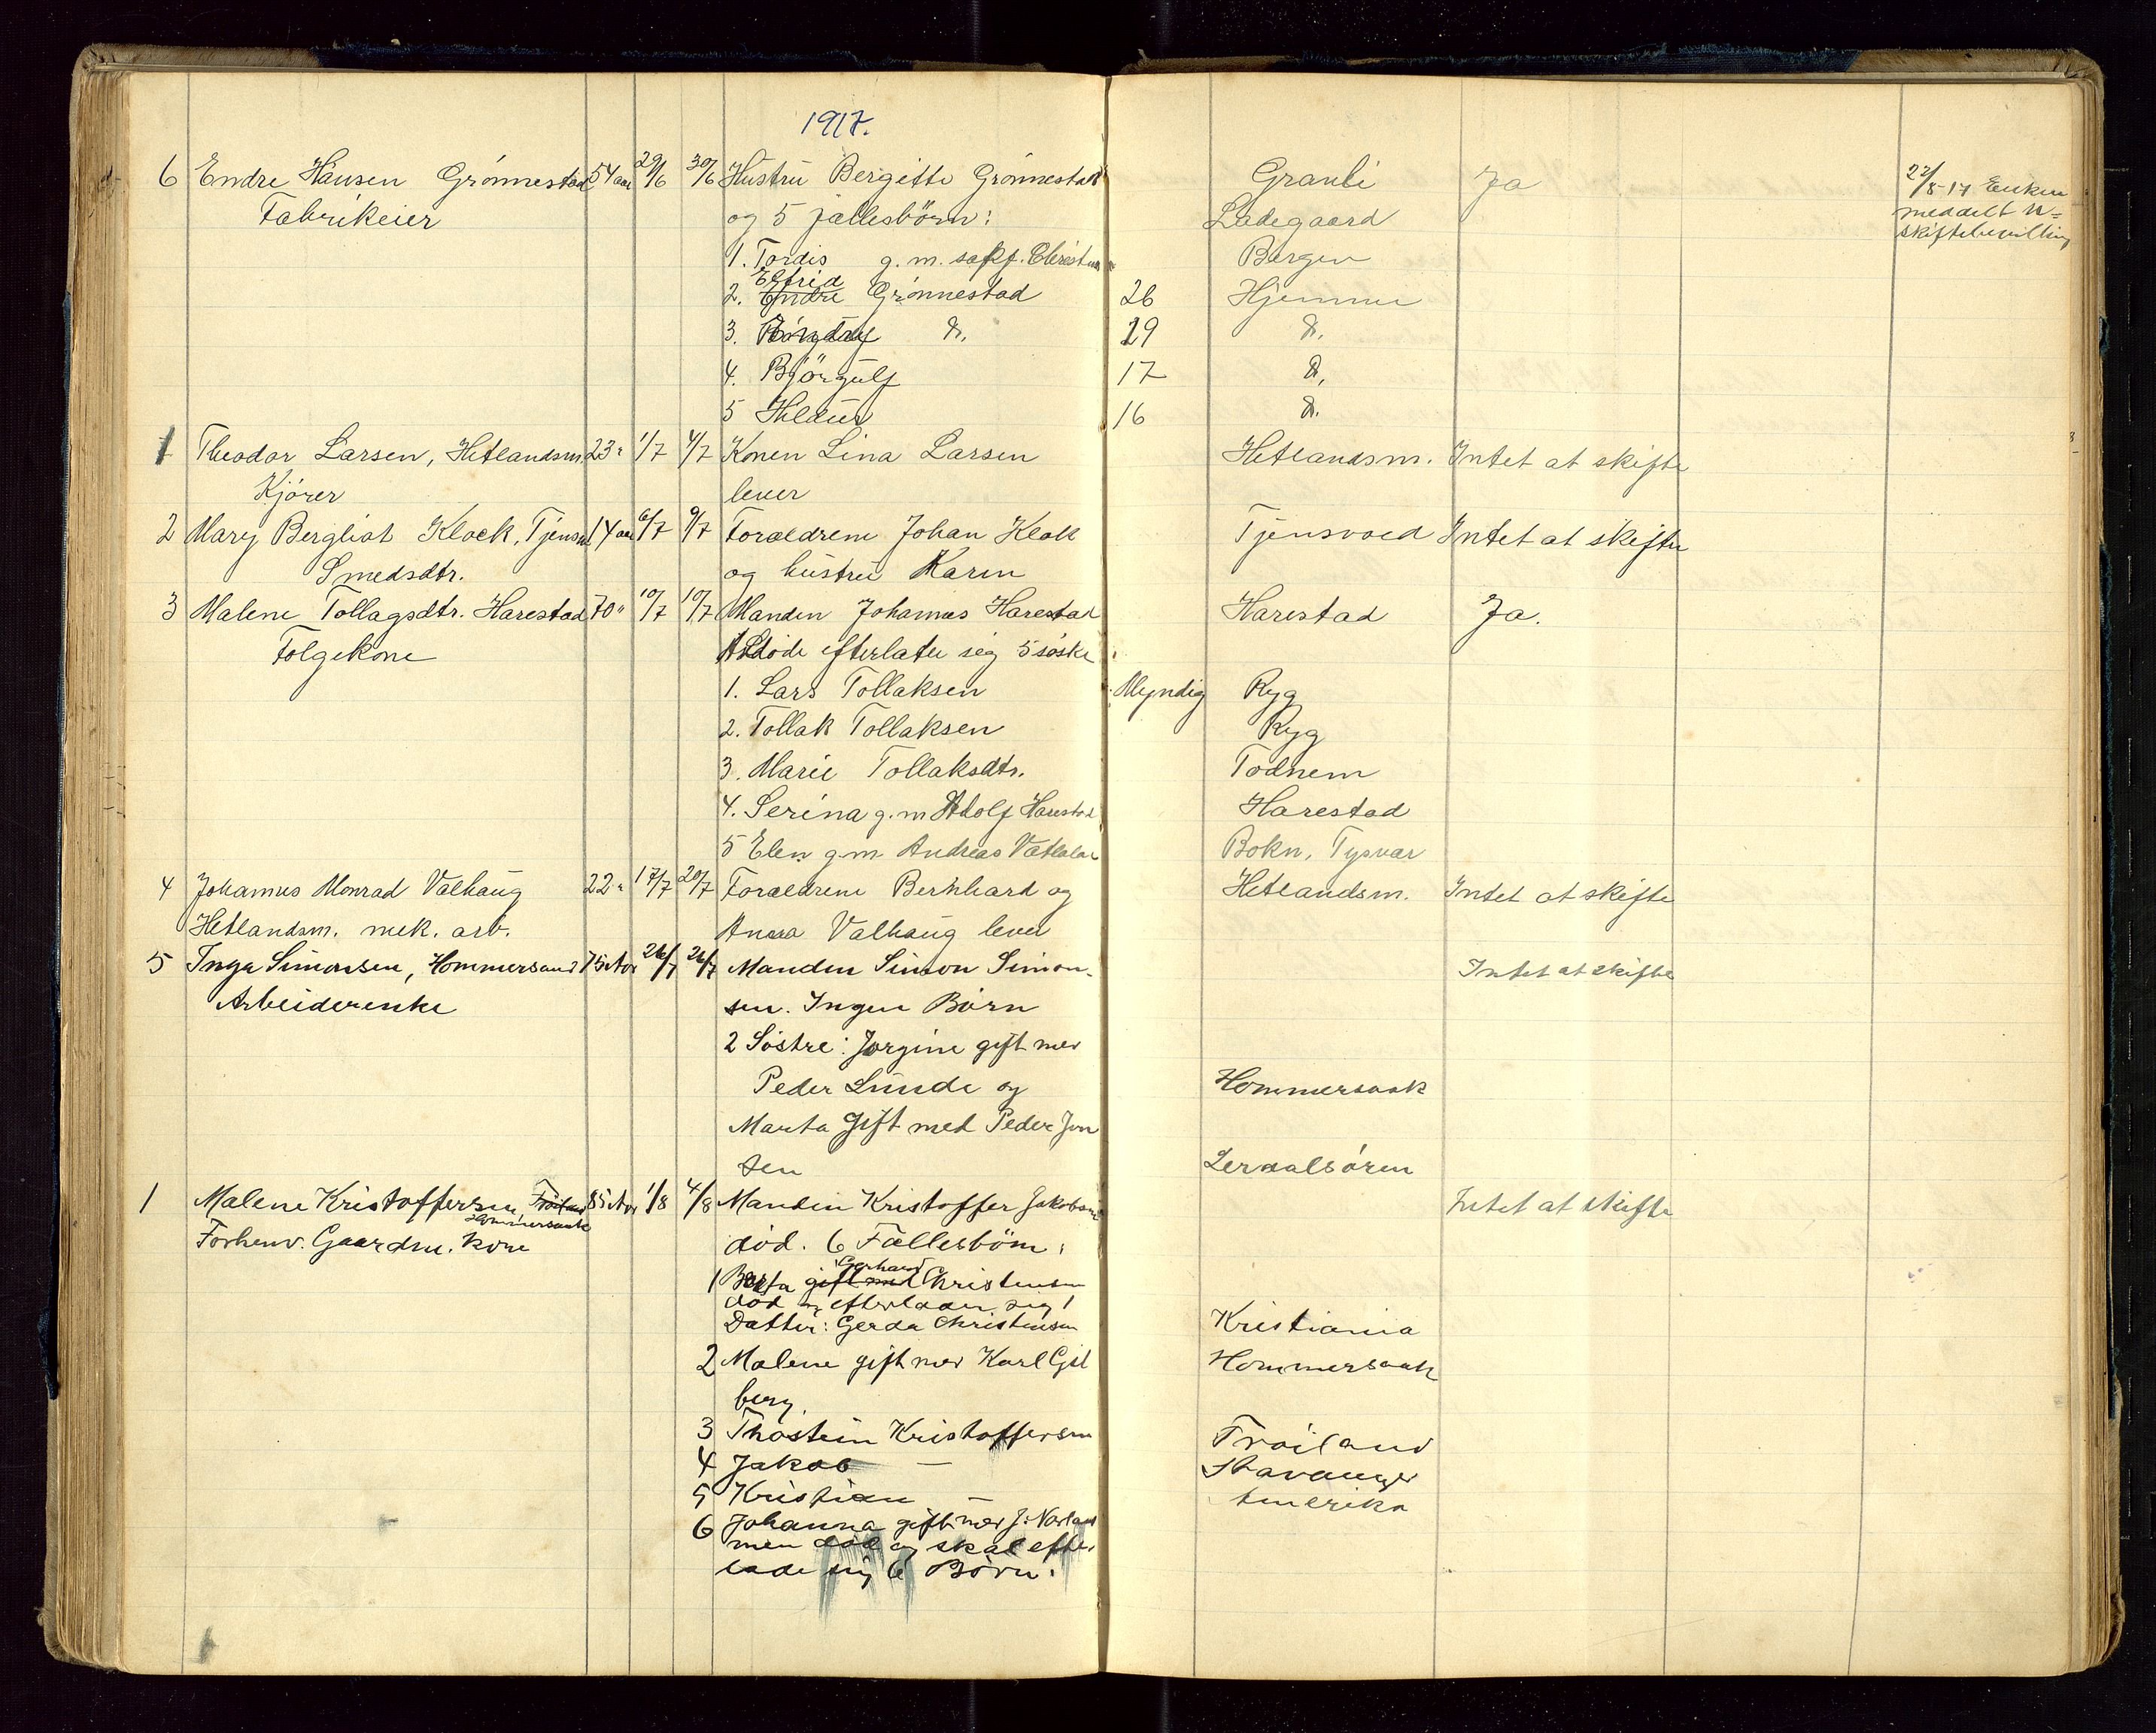 1917.
6 Endre Hansen Grönnestad 54 aar 29/6 30/6 Hustru Bergitte Grönnestad Granli Ja 22/8-17 Enken
Fabrikeier og 5 fællesbörn: Ladegaard meddelt u=
skiftebevilling
1. Tordis g. m. sakf. Bergen
2. Endre Elfrid Grönnestad 26 Hjemme
3. do. 19 do.
4. Björgulf 17 do.
5 Hildur 16 do.
1 Theodor Larsen, Hetlandsm. 23 " 1/7 4/7 Konen Lina Larsen Hetlandsm. Intet at skifte
Kjörer lever
2 Mary Bergliot Klock, Tjensv 14 aar 6/7 9/7 Foræld­rene Johan Klock Tjensvold Intet at skifte
Smedsdtr. og hustru Karen
3 Malene Tollagsdtr. Harestad 70 " 10/7 10/7 Manden Johannes Harestad Harestad Ja.
Folgekone Afdöde efterlater sig 5 söske
1. Lars Tollaksen Myndig Ryg
2. Tollak Tollaksen Ryg
3. Marie Tollaksdtr. Todnem
4. Serina g. m Adolf Harestad Harestad
5 Elen g. m. Andreas Bokn, Tysvær
4 Johannes Monrad Valhaug 22 " 17/7 20/7 Forældrene Bernhard og Hetlandsm. Intet at skifte
Hetlandsm. mek. arb. Anna Valhaug lever
5 Inga Simonsen, Hommersand 75 Aar 26/7 26/7 Manden Simon Simon- Intet at skifte
Arbeiderenke sen. Ingen Börn
2 Söstre: Jorgine gift med
Peder Lunde og Hommersaak
Marta Gift med Peder Jon
sen Lerdalsören
1 Malene Kristoffersen Fröiland 85 Aar 1/8 4/8 Manden Kristoffer Jakobsen Intet at skifte
Hommersaak
Forhenv. Gaardm. kone död. 6 Fællesbörn:
1 Berta gift med Gerhard Christensen
död og efterlader sig 1
Datter: Gerda Christensen Kristiania
2 Malene gift med Karl Gil Hommersaak
berg.
3 Thostein Kristoffersen Fröiland
4 Jakob — Stavanger
5 Kristian — Amerika
6 Johanna gift med J.
men död og skal efter
lade sig 6 Börn.